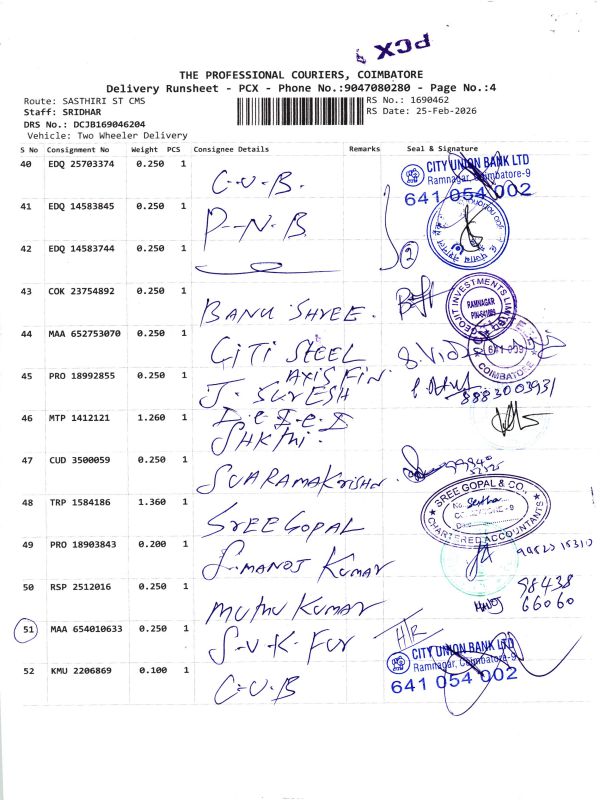 PCX
THE PROFESSIONAL COURIERS, COIMBATORE
Delivery Runsheet - PCX - Phone No.:9047080280 - Page No.:4
Route: SASTHIRI ST CMS
RS No.: 1690462
Staff: SRIDHAR
RS Date: 25-Feb-2026
DRS No.: DCJB169046204
Vehicle: Two Wheeler Delivery
S No Consignment No Weight PCS Consignee Details Remarks Seal & Signature
40 EDQ 25703374 0.250 1 C-U-B. CITY UNION BANK LTD
Ramnagar, Coimbatore-9
641 054 002
41 EDQ 14583845 0.250 1 P-N-B
42 EDQ 14583744 0.250 1 2
43 COK 23754892 0.250 1 BANU SHREE. GEOJIT INVESTMENTS LIMITED
RAMNAGAR
PIN-641009
44 MAA 652753070 0.250 1 CITI STEEL
COIMBATORE
AXIS FIN.
45 PRO 18992855 0.250 1 J. SURESH 8883003931
46 MTP 1412121 1.260 1
SHKMI.
47 CUD 3500059 0.250 1 SUARAMAKrishn.
48 TRP 1584186 1.360 1 SREE GOPAL SREE GOPAL & CO.,
CHARTERED ACCOUNTANTS
49 PRO 18903843 0.200 1 S. MANOJ KUMAR
50 RSP 2512016 0.250 1 MUTHU KUMAR 98438
66060
51 MAA 654010633 0.250 1 S-U-K-FUR H/R
52 KMU 2206869 0.100 1 C-U-B CITY UNION BANK LTD
Ramnagar, Coimbatore-9
641 054 002